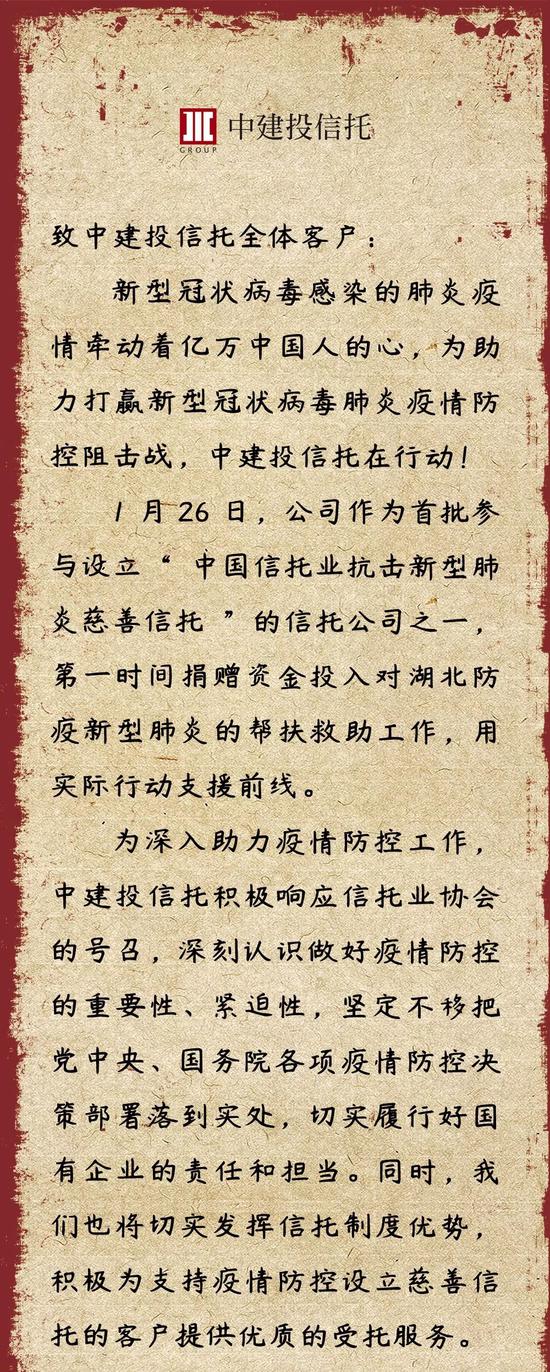 JIC
GROUP
中建投信托
致中建投信托全体客户：
新型冠状病毒感染的肺炎疫
情牵动着亿万中国人的心，为助
力打赢新型冠状病毒肺炎疫情防
控阻击战，中建投信托在行动！
1 月 26 日，公司作为首批参
与设立“ 中国信托业抗击新型肺
炎慈善信托 ”的信托公司之一，
第一时间捐赠资金投入对湖北防
疫新型肺炎的帮扶救助工作，用
实际行动支援前线。
为深入助力疫情防控工作，
中建投信托积极响应信托业协会
的号召，深刻认识做好疫情防控
的重要性、紧迫性，坚定不移把
党中央、国务院各项疫情防控决
策部署落到实处，切实履行好国
有企业的责任和担当。同时，我
们也将切实发挥信托制度优势，
积极为支持疫情防控设立慈善信
托的客户提供优质的受托服务。